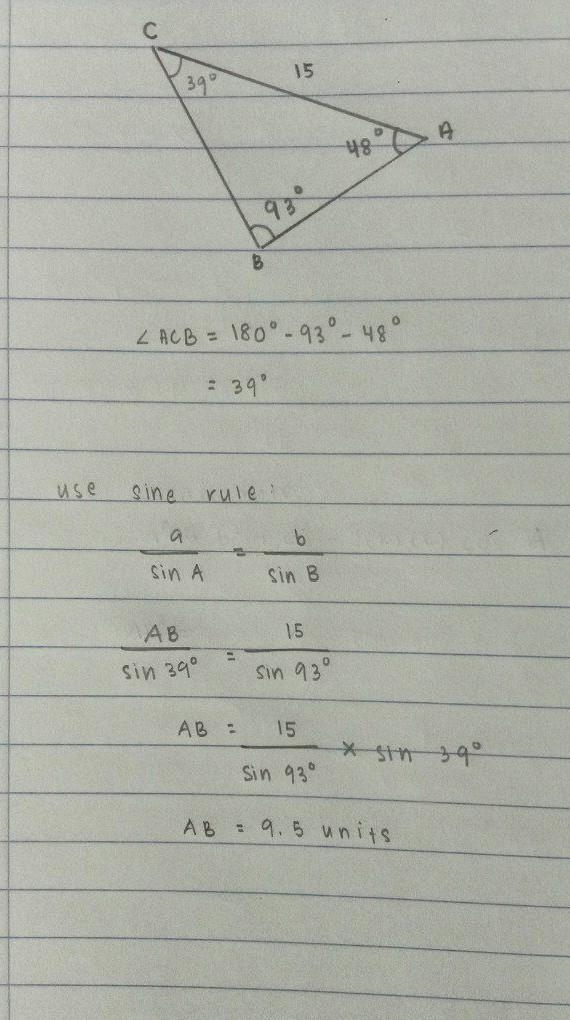 C
39° 15
48° A
93°
B
∠ACB = 180° - 93° - 48°
= 39°
use sine rule:
a/sin A = b/sin B
AB/sin 39° = 15/sin 93°
AB = 15/sin 93° × sin 39°
AB = 9.5 units